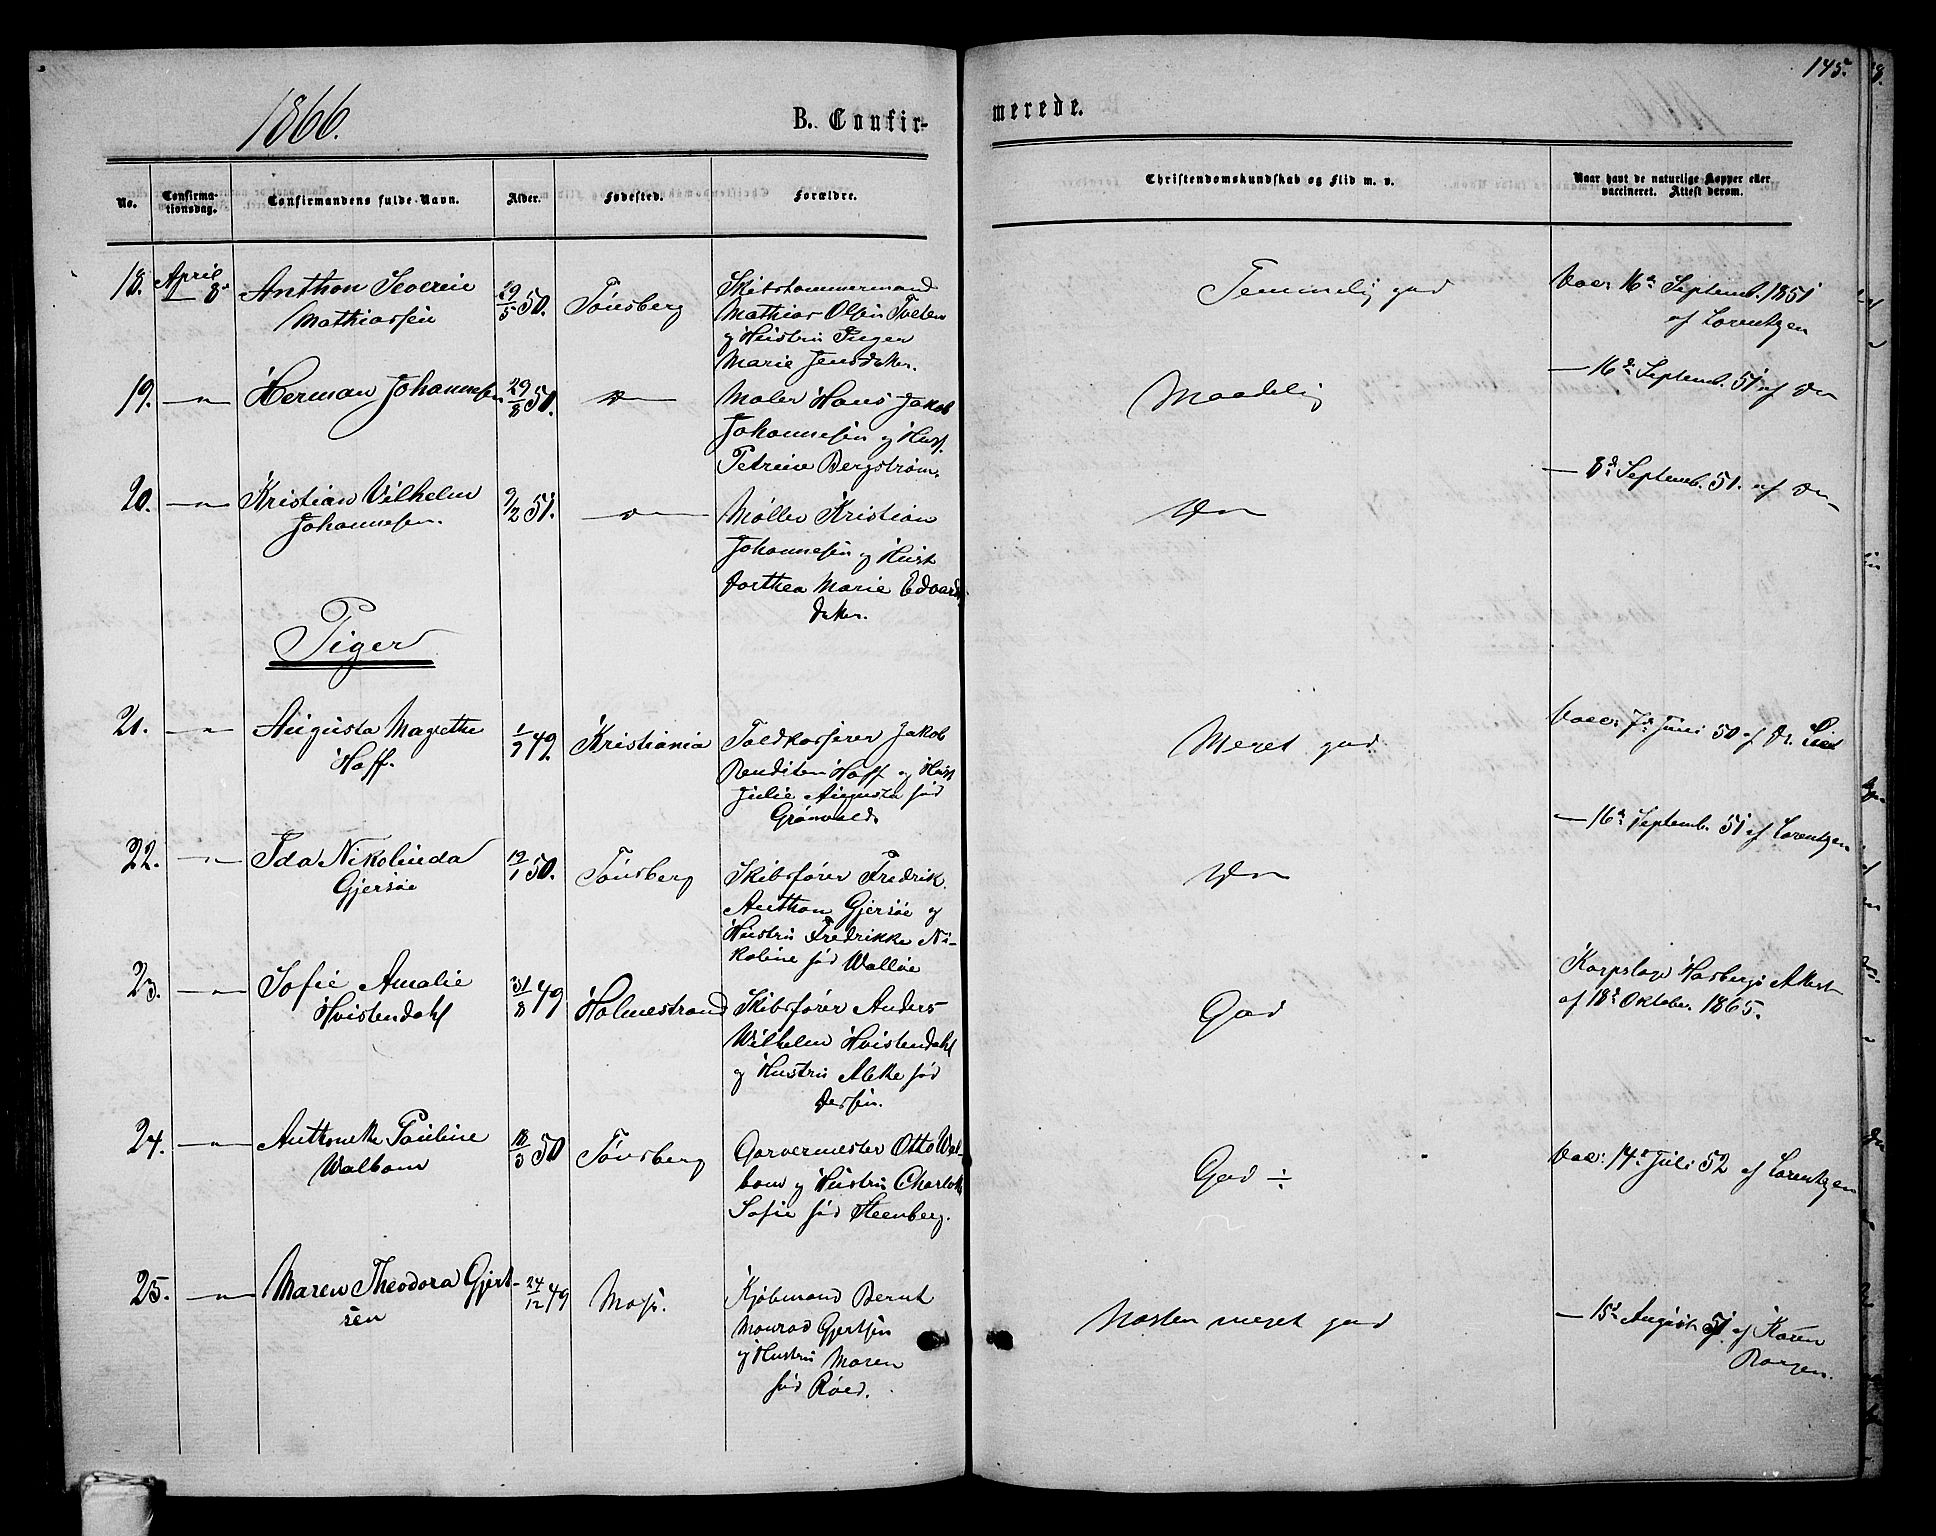 1866.
B. Confirmerede.
145.
No.
Confirmationsdag.
Confirmandens fulde Navn.
Alder.
Fødested.
Forældre.
Christendomskundskab og Flid m. v.
Naar havt de naturlige Kopper eller vaccineret. Attest derom.
18.
April 8de
Anthon Severin
Mathiassen
29/5 50.
Tønsberg
Skibstømmermand
Mathias Olsen Tveten
og Hustru Inger
Marie Jensdatter.
Temmelig god
Vacc: 16de Septemb. 1851
af Lorentzen
19.
—"—
Herman Johannesen
29/8 50.
—"—
Maler Hans Jakob
Johannesen og Hust.
Petrine Bergstrøm.
Maadelig
— 16de Septemb. 51 af Do
20.
—"—
Kristian Vilhelm
Johannesen.
9/2 51.
—"—
Møller Kristian
Johannesen og Hust
Dorthea Marie Edvards
datter.
Do
— 8de Septemb. 51. af Do
Piger
21.
—"—
Augusta Magrethe
Hoff.
1/7 49.
Kristiania
Toldkasserer Jakob
Benditen Hoff og Hust
Julie Augusta fød
Grønvold.
Meget god
Vacc: 7de Juni 50 af Dr.
22.
—"—
Ida Nikolinda
Gjersøe
19/1 50.
Tønsberg
Skibsfører Fredrik
Anthon Gjersøe og
Hustru Fredrikke Ni-
koline fød Walløe
Do
— 16de Septemb. 51 af Lorentzen
23.
—"—
Sofie Amalie
Hvistendahl
31/8 49
Holmestrand
Skibsfører Anders
Wilhelm Hvistendahl
og Hustru Alette fød
Dersen.
God
Korpslæge Hasbergs Attest
af 18de Oktober 1865.
24.
—"—
Anthonette Pauline
Walbom
18/3 50
Tønsberg
Garvermester Otto Wal-
bom og Hustru Charlotte
Sofie fød Steenberg.
God ÷
Vacc: 14de Juli 52 af Lorentzen
25.
—"—
Maren Theodora Gjert-
sen
24/12 49
Moss.
Kjøbmand Bernt
Monrad Gjertsen
og Hustru Maren
fød Røed.
Næsten meget god
— 15de August 51. af Karen